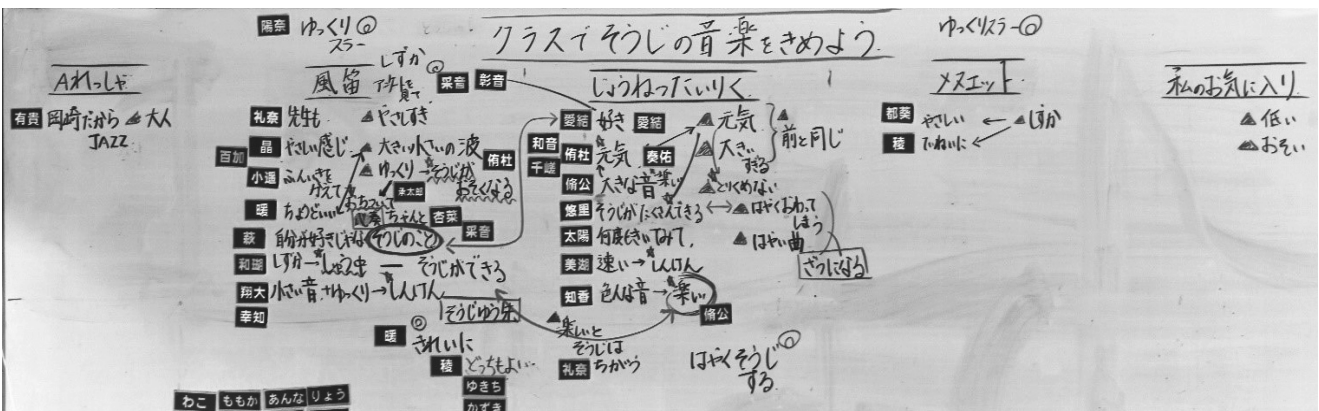 クラスでそうじの音楽をきめよう
陽奈 ゆっくり◎
スラー
ゆっくりスラー◎
Aれっしゃ
有貴 岡崎だから ▲大人
JAZZ
風笛
しずか
采音 彰音
礼奈 先生も ▲やさしすぎ
晶 やさしい感じ ▲大きい小さいの波 侑杜
百加
小遥 ふんいきを ▲ゆっくり→そうじが
おそくなる
暖 ちょどいい
おちついて
ちゃんと 杏菜
采音
萩 自分が好きじゃな そうじのこと
和瑚 しずか→しゅう中 ー そうじができる
翔大 小さい音+ゆっくり→しんけん
幸知
そうじゆう先
暖 ◎
きれいに
稜 どっちもよい…
ゆきち
かずき
わこ ももか あんな りょう
じょうねったいりく
愛結 好き 愛結 ▲元気
和音
侑杜 元気 奏佑 ▲大きい
すぎる
▲
前と同じ
千嵯
脩公 大きな音楽い ▲とりくめない
悠里 そうじがたくさんできる ↔ ▲はやくおわって
しまう
太陽 何度もきいてみて、 ▲はやい曲
ざつになる
美湖 速い→しんけん
知香 色んな音→楽しい
脩公
▲楽しいと
そうじは
礼奈 ちがう
はやくそうじ◎
する
メヌエット
都葵 やさしい ← ▲しずか
稜 ていねいに
私のお気に入り
▲低い
▲おそい